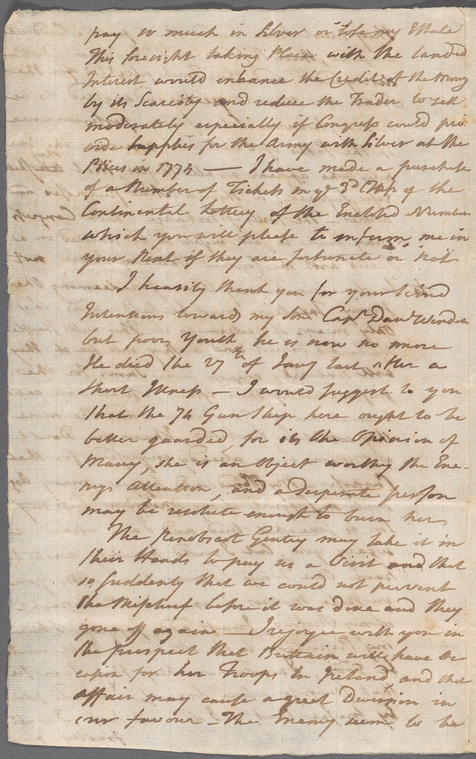 pay so much in Silver or lose my Estate
This foresight taking Place with the landed
Interest would enhance the Credit of the Money
by its Scarcity and reduce the Trader to sell
moderately especially if Congress could pro
vide Supplies for the Army with Silver at the
Prices in 1774 — I have made a purchase
of a Number of Tickets in ye 3d Class of the
Continental Lottery of the Enclosed Number
which you will please to inform me in
your Next if they are fortunate or not
I heartily thank you for your kind
Intentions towards my Son Capt
but poor Youth he is now no more
He died the 27th of Jany last after a
short Illness — I would suggest to you
that the 74 Gun Ship here ought to be
better guarded, for its the Opinion of
Many, she is an Object worthy the Ene
mys Attention, and a desperate person
may be resolute enough to burn her
The Penobscot Gentry may take it in
their Heads to pay us a Visit and that
so suddenly that we could not prevent
the Mischief before it was done and they
gone off again — I rejoyce with you in
the prospect that Brittain will have Oc
casion for her Troops in Ireland and that
affair may cause a great Diversion in
our favour — The Enemy seem to be